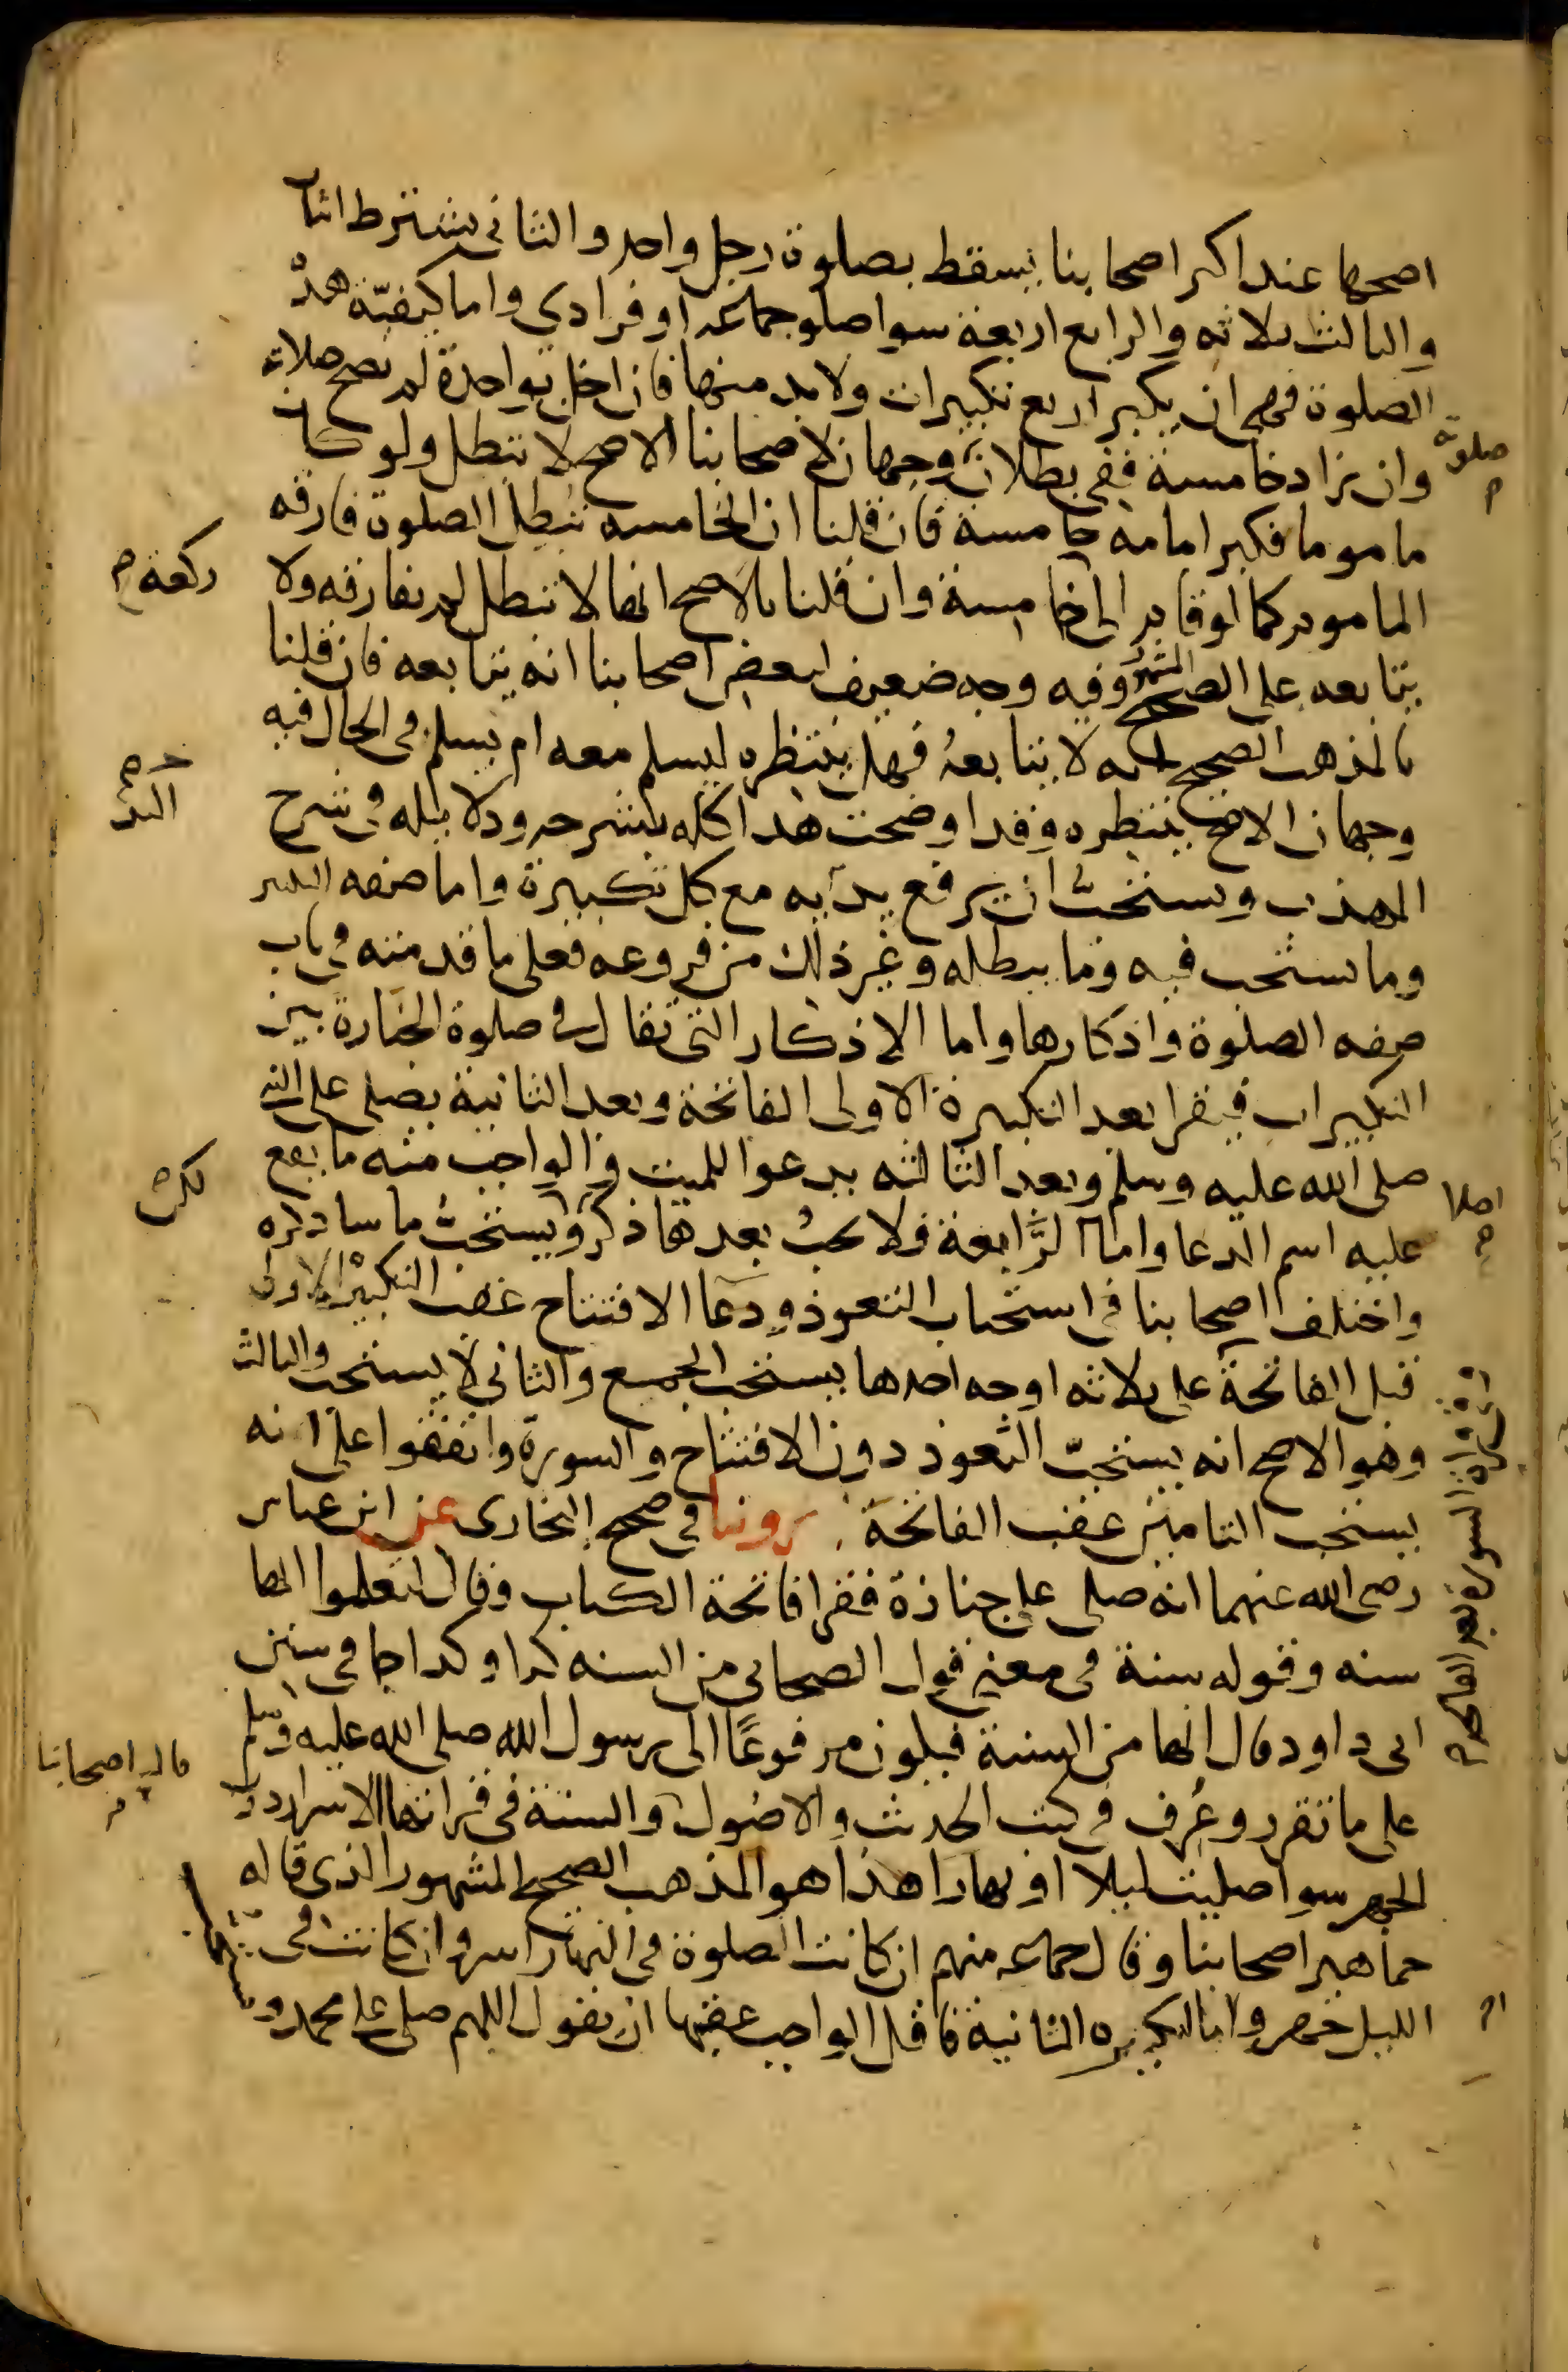 اصحها عند اكثر اصحابنا يسقط بصلوة رجل واحد والثاني يشترط اثنان
والثالث ثلاثه والرابع اربعة سوا صلو جماعه او فرادي واما كيفيّة هذه
الصلوة فهي ان يكبر اربع تكبيرات ولا بد منها فان اخل بواحدة لم تصح صلاته
وان زاد خامسة ففي بطلان وجهان لاصحابنا الاصح لا تبطل ولو كان
صلوته
ماموما فكبر امامه خامسة فان قلنا ان الخامسه تبطل الصلوة فارقه
الماموم كما لو قام الى خامسة وان قلنا بالاصح انها لا تبطل لم يفارقه ولا
ركعة
يتابعه على الصحيح المشهور وفيه وجه ضعيف لبعض اصحابنا انه يتابعه فان قلنا
بالمذهب الصحيح انه لا يتابعهُ فهل ينتظره ليسلم معه ام يسلم في الحال فيه
وجهان الاصح ينتظره وقد اوضحت هذا كله بشرحه ودلايله في شرح
المهذب ويستحبُّ ان يرفع يديه مع كل تكبيرة واما صفه التكبير
وما يستحب فيه وما يبطله وغير ذلك من فروعه فعلى ما قدمته في باب
صفه الصلوة واذكارها واما الاذكار التي تقال في صلوة الجنازة بين
التكبيرات فيقرا بعد التكبيرة الاولى الفاتحة وبعد الثانية يصلي على النبي
صلى الله عليه وسلم وبعد الثالثه يدعوا للميت والواجب منه ما يقع
عليه اسم الدعا واما الرَّابعة فلا يجبُ بعدها ذكر ويستحبُّ ما ساذكره
اصلا
لكن
واختلف اصحابنا في استحباب التعوذ ودعا الافتتاح عقب التكبيرة الاولى
قبل الفاتحة على ثلاثه اوجه احدها يستحب الجميع والثاني لا يستحب والثالث
وفي قراة السورة بعد الفاتحة
وهو الاصح انه يستحبّ التعوذ دون الافتتاح والسورة واتفقوا على انه
يستحب التامين عقب الفاتحة روينا في صحيح البخاري عن ابن عباس
رضي الله عنهما انه صلى على جنازة فقرا فاتحة الكتاب وقال لتعلموا انها
سنه وقوله سنة في معنى قول الصحابي من السنه كذا وكذا جا في سنن
ابي داود قال انها من السنة فيكون مرفوعًا الى رسول الله صلى الله عليه وسلم
على ما تقرر وعُرف في كتب الحديث والاصُول والسنة في قراتها الاسرار دون
قال اصحابنا
الجهر سوا صليت ليلا او نهارا هذا هو المذهب الصحيح المشهور الذي قاله
جماهير اصحابنا وقال جماعه منهم ان كانت الصلوة في النهار اسر وان كانت في
الليل جهر واما التكبيره الثانية فاقل الواجب عقبها ان يقول اللهم صل على محمد